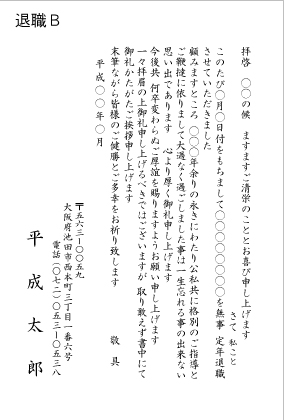 退職B
拝啓 〇〇の候 ますますご清栄のこととお喜び申し上げます
さて 私こと
このたび〇月〇日付をもちまして〇〇〇〇〇〇〇を無事 定年退職
させていただきました
顧みますところ 〇〇〇年余りの永きにわたり公私共に格別のご指導と
ご鞭撻に依りまして大過なく過ごしました事は一生忘れる事の出来ない
思い出であります 心より厚く御礼申し上げます
今後共 何卒変わらぬご厚誼を賜りますようお願い申し上げます
一々拝眉の上御礼申し上げるべきではございますが 取り敢えず書中にて
御礼かたがたご挨拶申し上げます
末筆ながら皆様のご健勝とご多幸をお祈り致します
敬具
平成〇〇年〇月
〒五六三-〇〇五九
大阪府池田市西本町三丁目一番六号
電話(〇七二)〇五五三-〇五三八
平成太郎